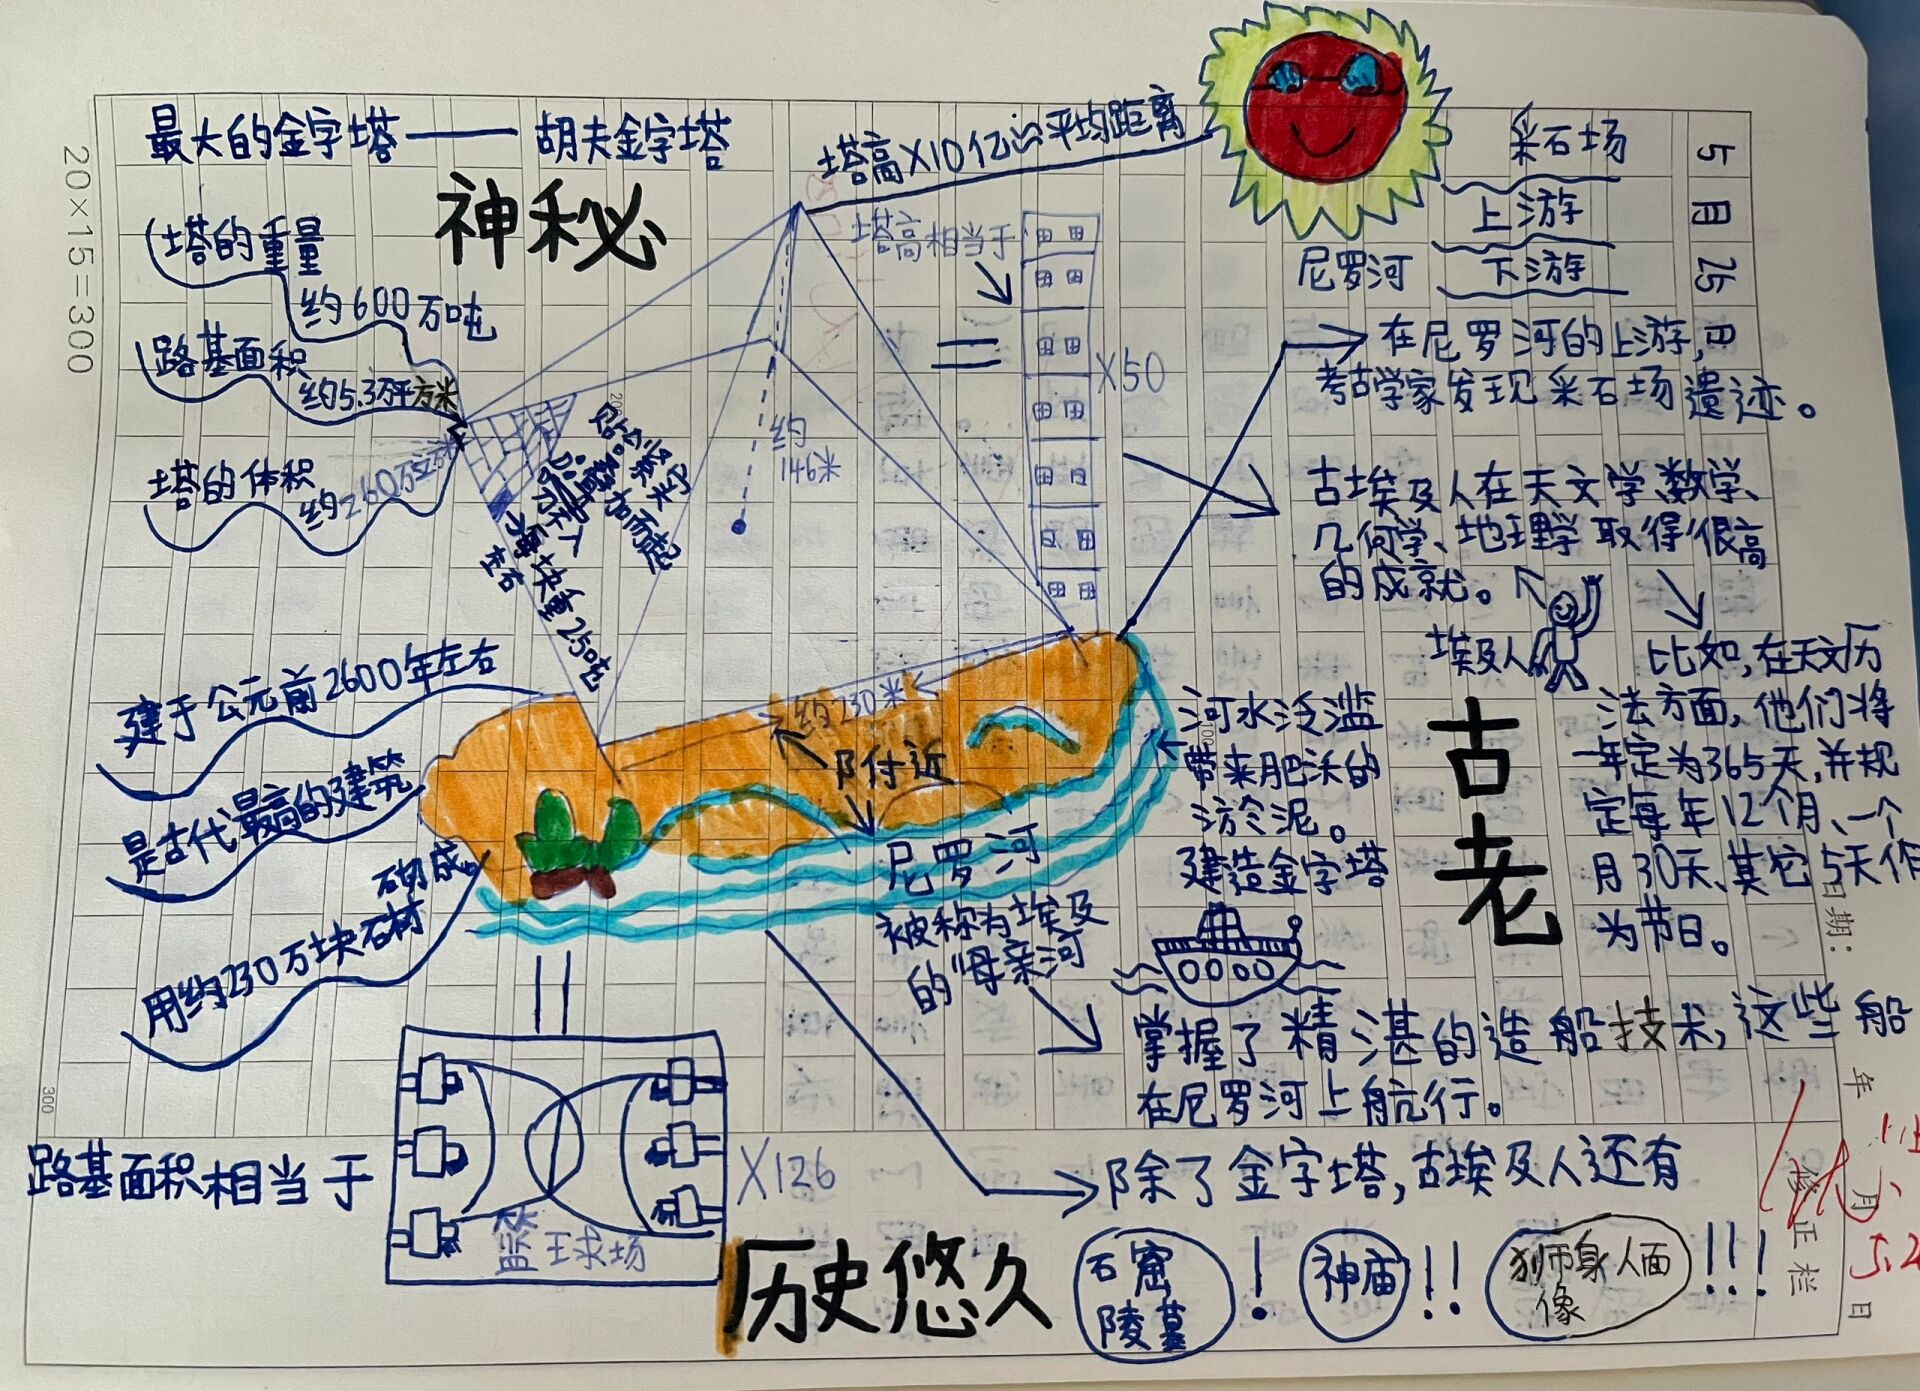 最大的金字塔——胡夫金字塔
神秘
塔的重量
约600万吨
路基面积
约5.3万平方米
塔的体积
约260万立方米
塔高×10亿≈平均距离
塔高相当于
×50
约
146米
每块重2.50吨
左右
约230米长
附近
建于公元前2600年左右
是古代最高的建筑
用约230万块石材
砌成。
尼罗河
被称为埃及
的“母亲河
采石场
上游
尼罗河 下游
5月25日
在尼罗河的上游,
考古学家发现采石场遗迹。
古埃及人在天文学、数学、
几何学、地理学取得很高
的成就。
埃及人
比如,在天文历
法方面,他们将
一年定为365天,并规
定每年12个月、一个
月30天、其它5天作
为节日。
古老
河水泛滥
带来肥沃的
淤泥。
建造金字塔
掌握了精湛的造船技术,这些船
在尼罗河上航行。
路基面积相当于
篮球场
×126
历史悠久
除了金字塔,古埃及人还有
石窟
陵墓
!
神庙
!!
狮身人面
像
!!!
20×15=300
100
200
300
日期:
年 月 日
修正栏